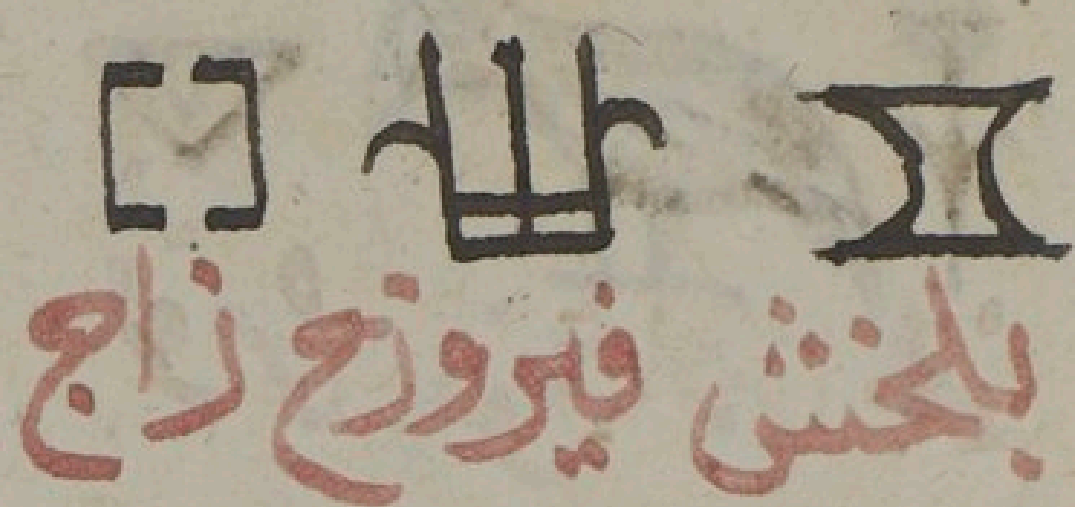 بلخش فيروزج زاج